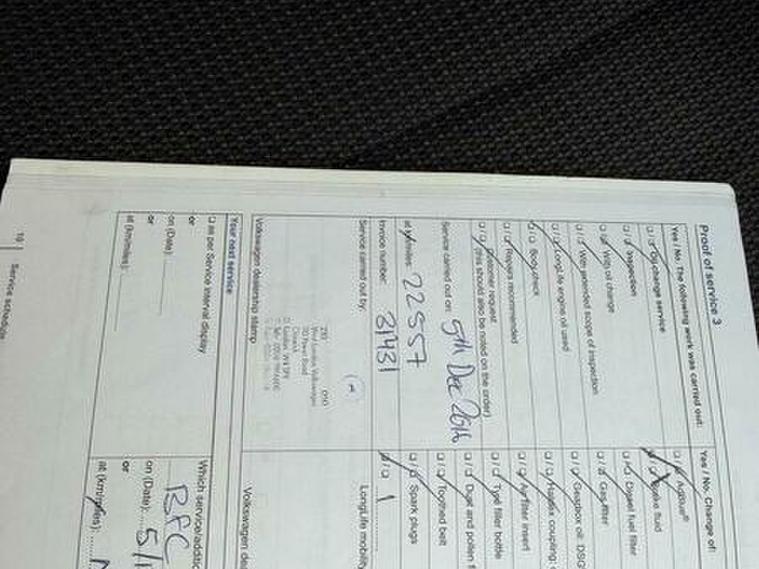 Proof of service 3
Yes / No The following work was carried out:
Oil change service
Inspection
With oil change
With extended scope of inspection
LongLife engine oil used
Body check
Repairs recommended
Customer request
(this should also be noted on the order)
Service carried out on: 5th Dec 2016
at km/miles: 22557
Invoice number: 31431
Service carried out by:
West London Volkswagen
Volkswagen dealership stamp
Your next service
as per Service interval display
or
on (Date):
or
at (km/miles):
Yes / No Change of:
AdBlue®
Brake fluid
Diesel fuel filter
Gas filter
Gearbox oil: DSG
Haldex coupling:
Air filter insert
Tyre filler bottle
Dust and pollen f
Toothed belt
Spark plugs
1
LongLife mobility
Volkswagen dea
Which service/additio
BFC
on (Date): 5/1
or
at (km/miles):
10 Service schedule